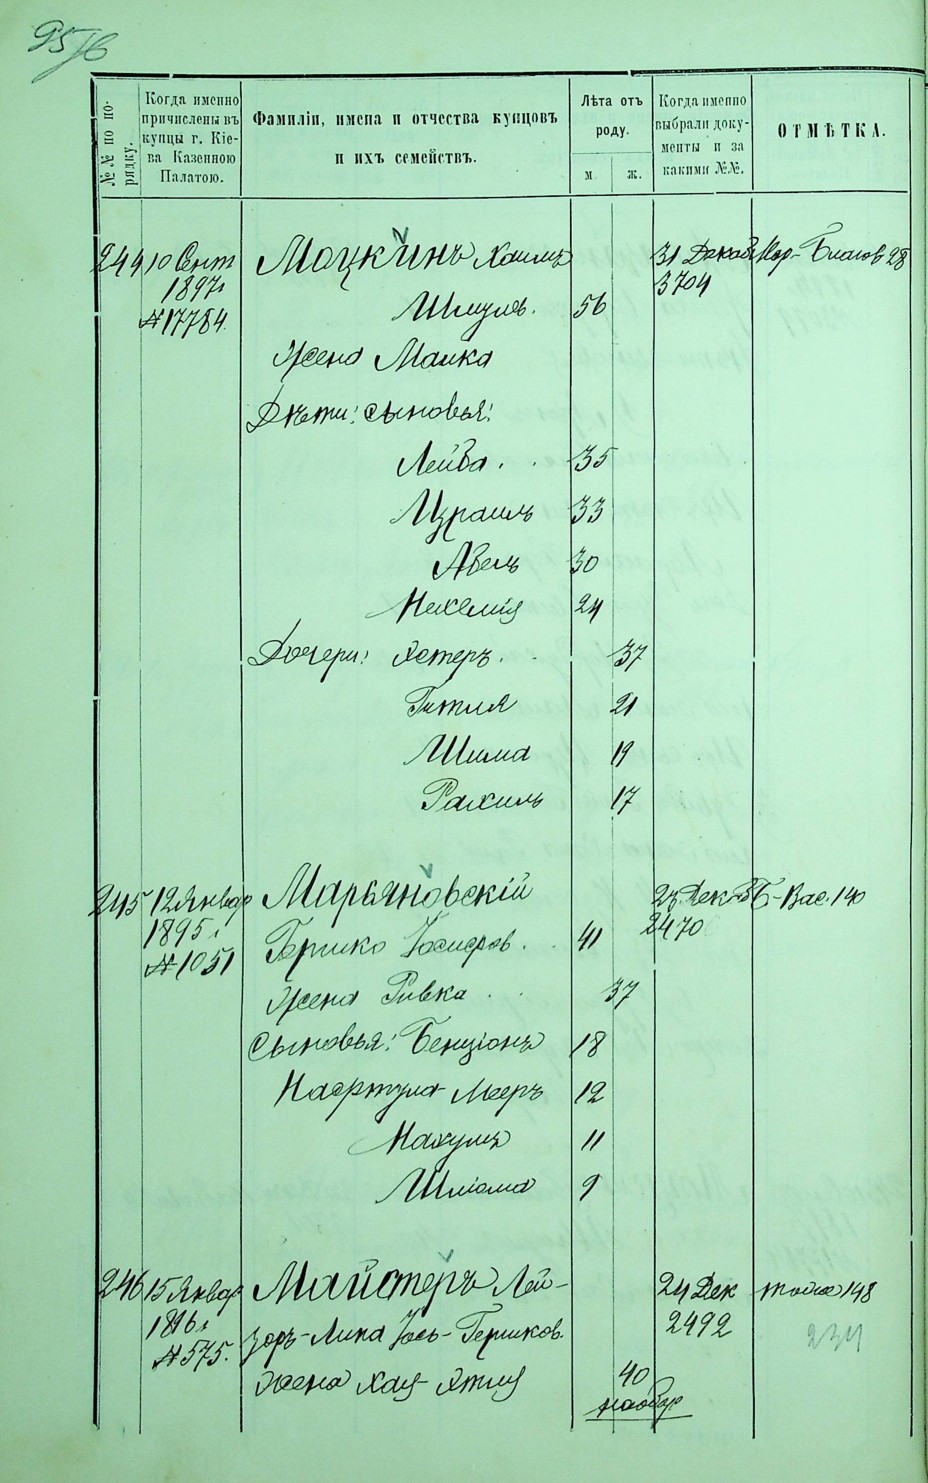 №№ по порядку.
Когда именно причислены въ купцы г. Кіева Казенною Палатою.
Фамиліи, имена и отчества купцовъ и ихъ семействъ.
Лѣта отъ роду.
м.
ж.
Когда именно выбрали документы и за какими №№.
ОТМѢТКА.
244 10 Сент Мацкинъ Хаимъ 31 Декаб
1897 г 3704
№17784 Шмулев. 56
Жена Малка
Дѣти: сыновья:
Лейба . . 35
Израиль 33
Абель 30
Нехемія 24
Дочери: Эстеръ . . 37
Гитля 21
Шима 19
Рахиль 17
245 12 Январ Марьяновскій 23 Дек Б-Вас. 140
1895 г 2470
№1051 Гершко Іосифов . . 41
Жена Ривка . 37
Сыновья: Бенціонъ 18
Нафтула-Мееръ 12
Нахумъ 11
Шліома 9
246 15 Январ Майстеръ Лей- 24 Дек тоже 148
1896 г 2492
№575. зоръ-Липа Іось-Гершков. 234
Жена Хая-Этля 40
наобор